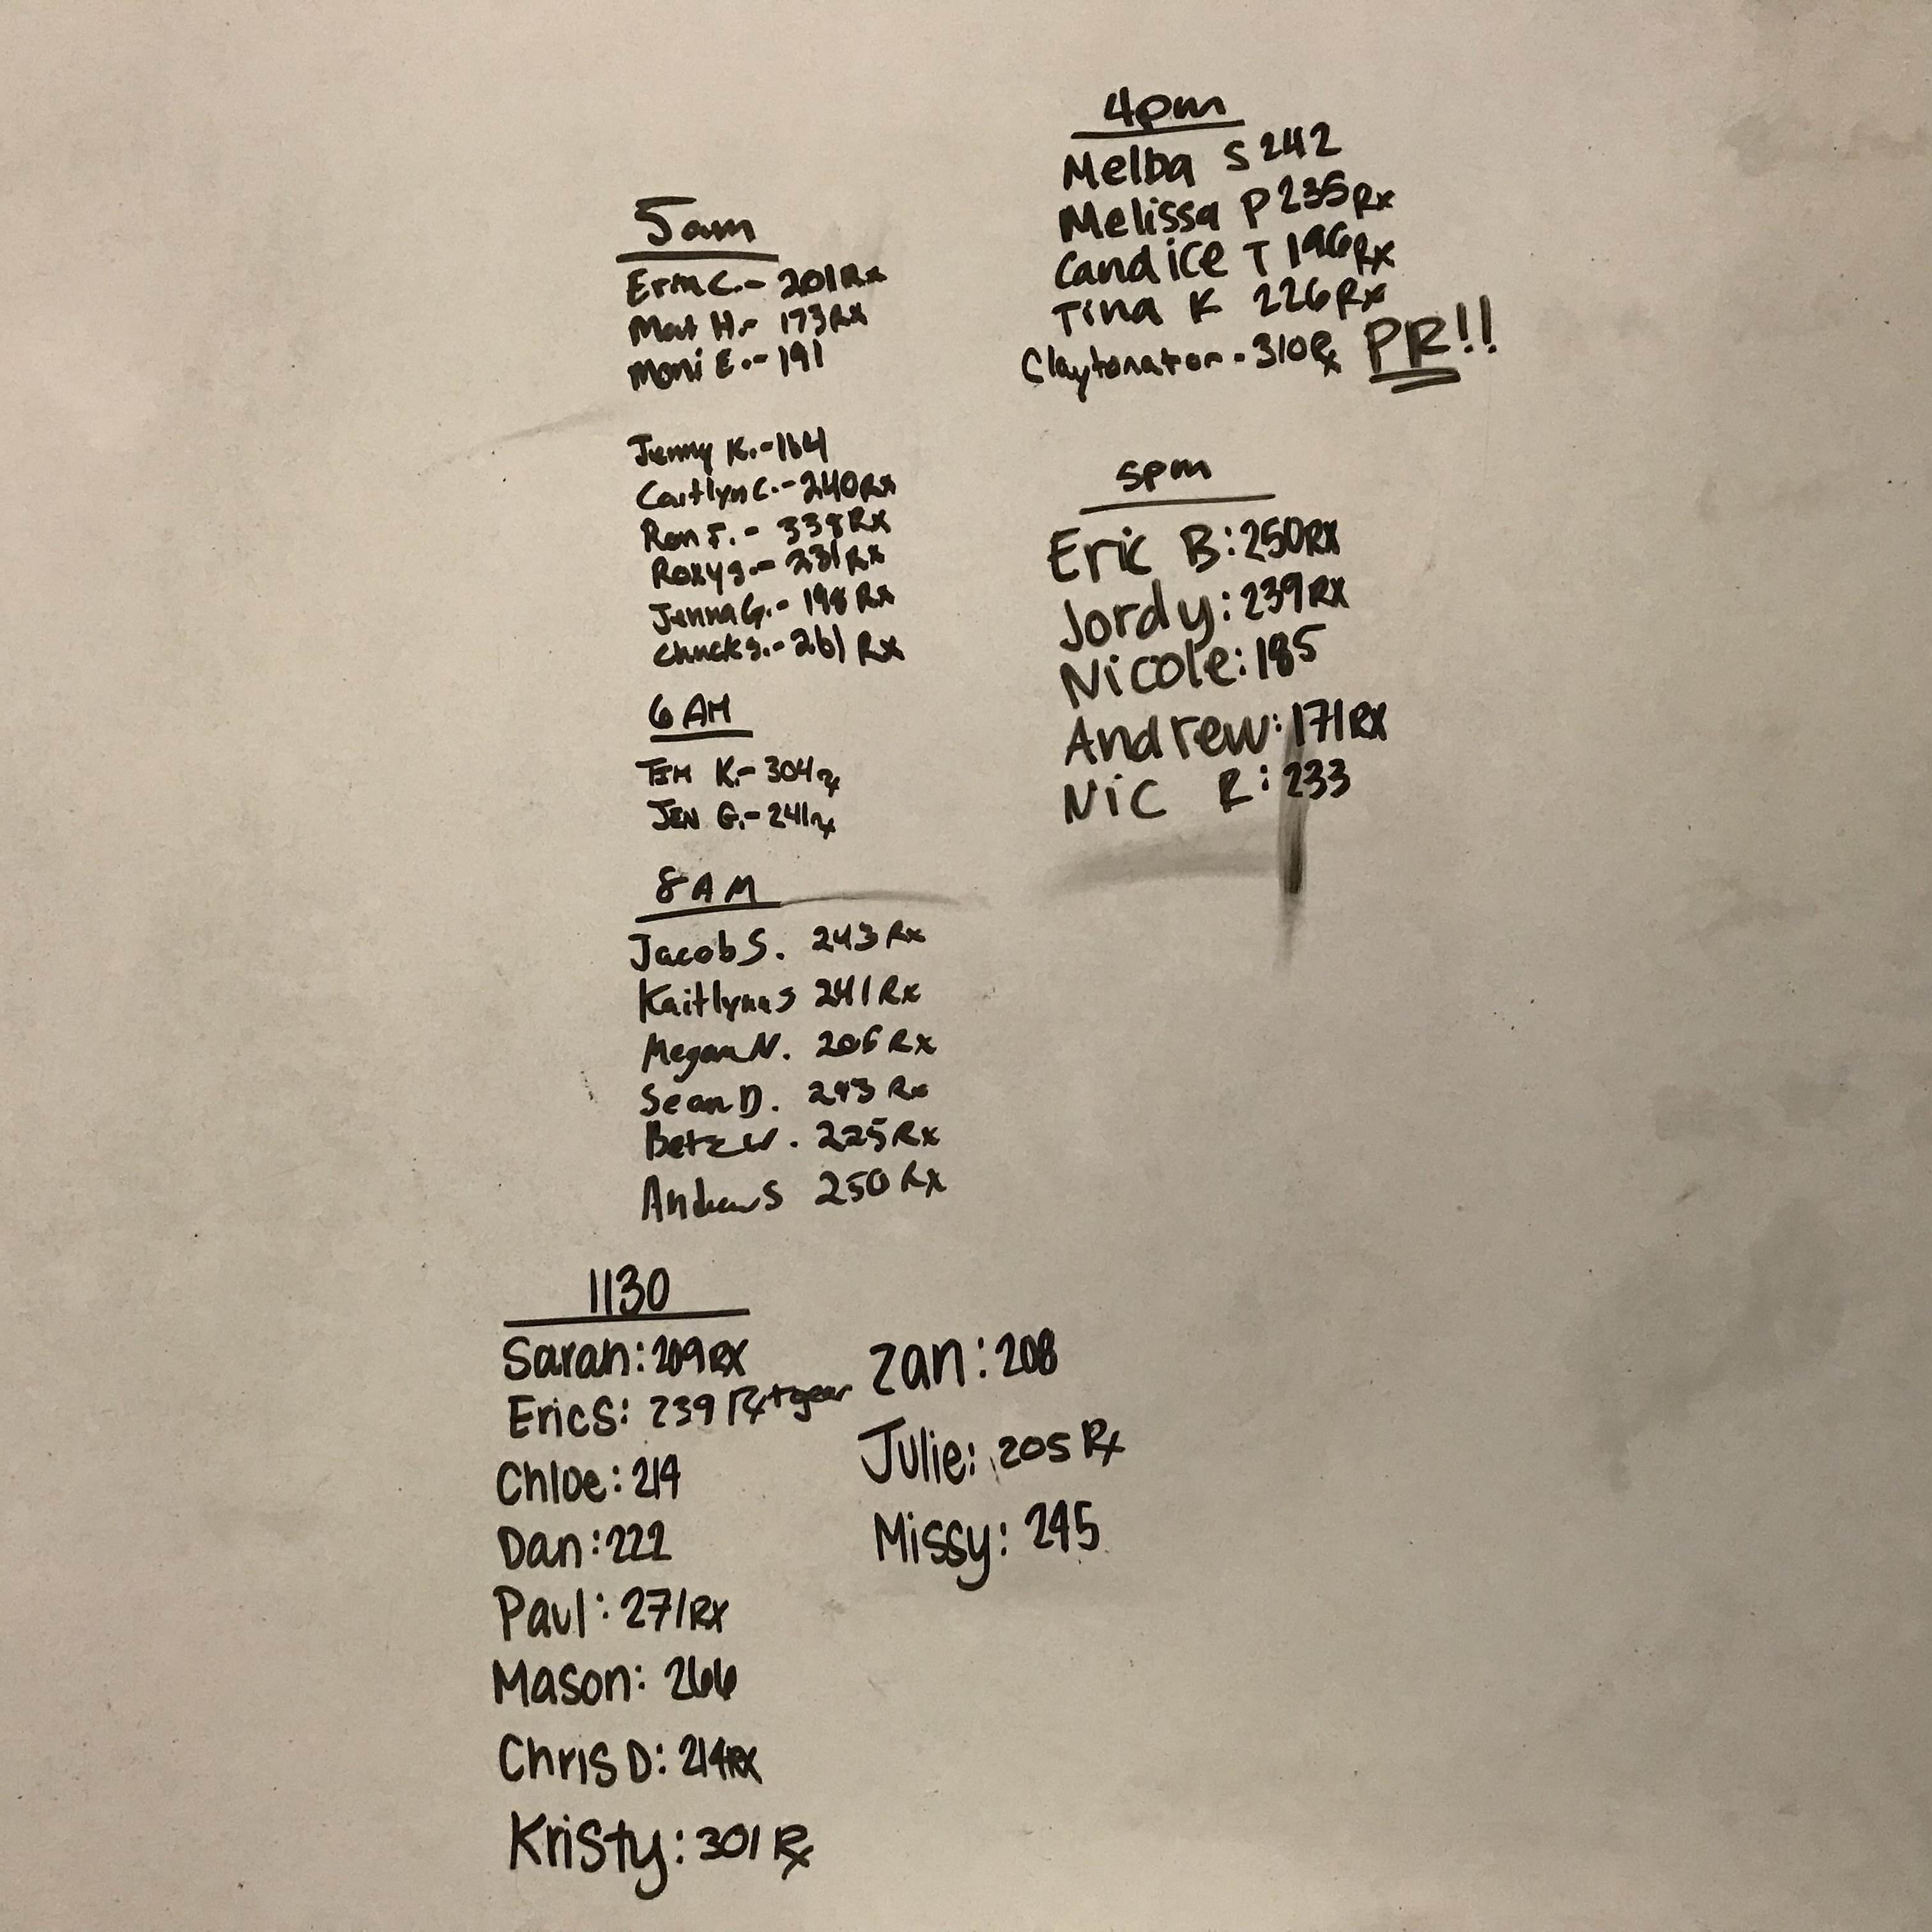 5am
Erin C.- 201 Rx
Mat H.- 173 Rx
Moni E.- 191
Jenny K.- 164
Caitlyn C.- 240 Rx
Ron F.- 338 Rx
Roxy S.- 231 Rx
Jenna G.- 198 Rx
Chuck S.- 261 Rx
6 AM
TIM K.- 304 rx
JEN G.- 241 rx
8 AM
Jacob S. 243 Rx
Kaitlynn S 241 Rx
Megan N. 206 Rx
Sean D. 293 Rx
Betz W. 225 Rx
Andrew S 250 Rx
1130
Sarah: 209 RX
Eric S: 239 Rx + gear
Chloe: 214
Dan: 222
Paul: 271 RX
Mason: 266
Chris D: 214 RX
Kristy: 301 Rx
Zan: 208
Julie: 205 Rx
Missy: 245
4pm
Melba S 242
Melissa P 235 Rx
Candice T 196 Rx
Tina K 226 Rx
Claytonator - 310 Rx PR!!
5pm
Eric B: 250 RX
Jordy: 239 RX
Nicole: 185
Andrew: 171 RX
Nic R: 233